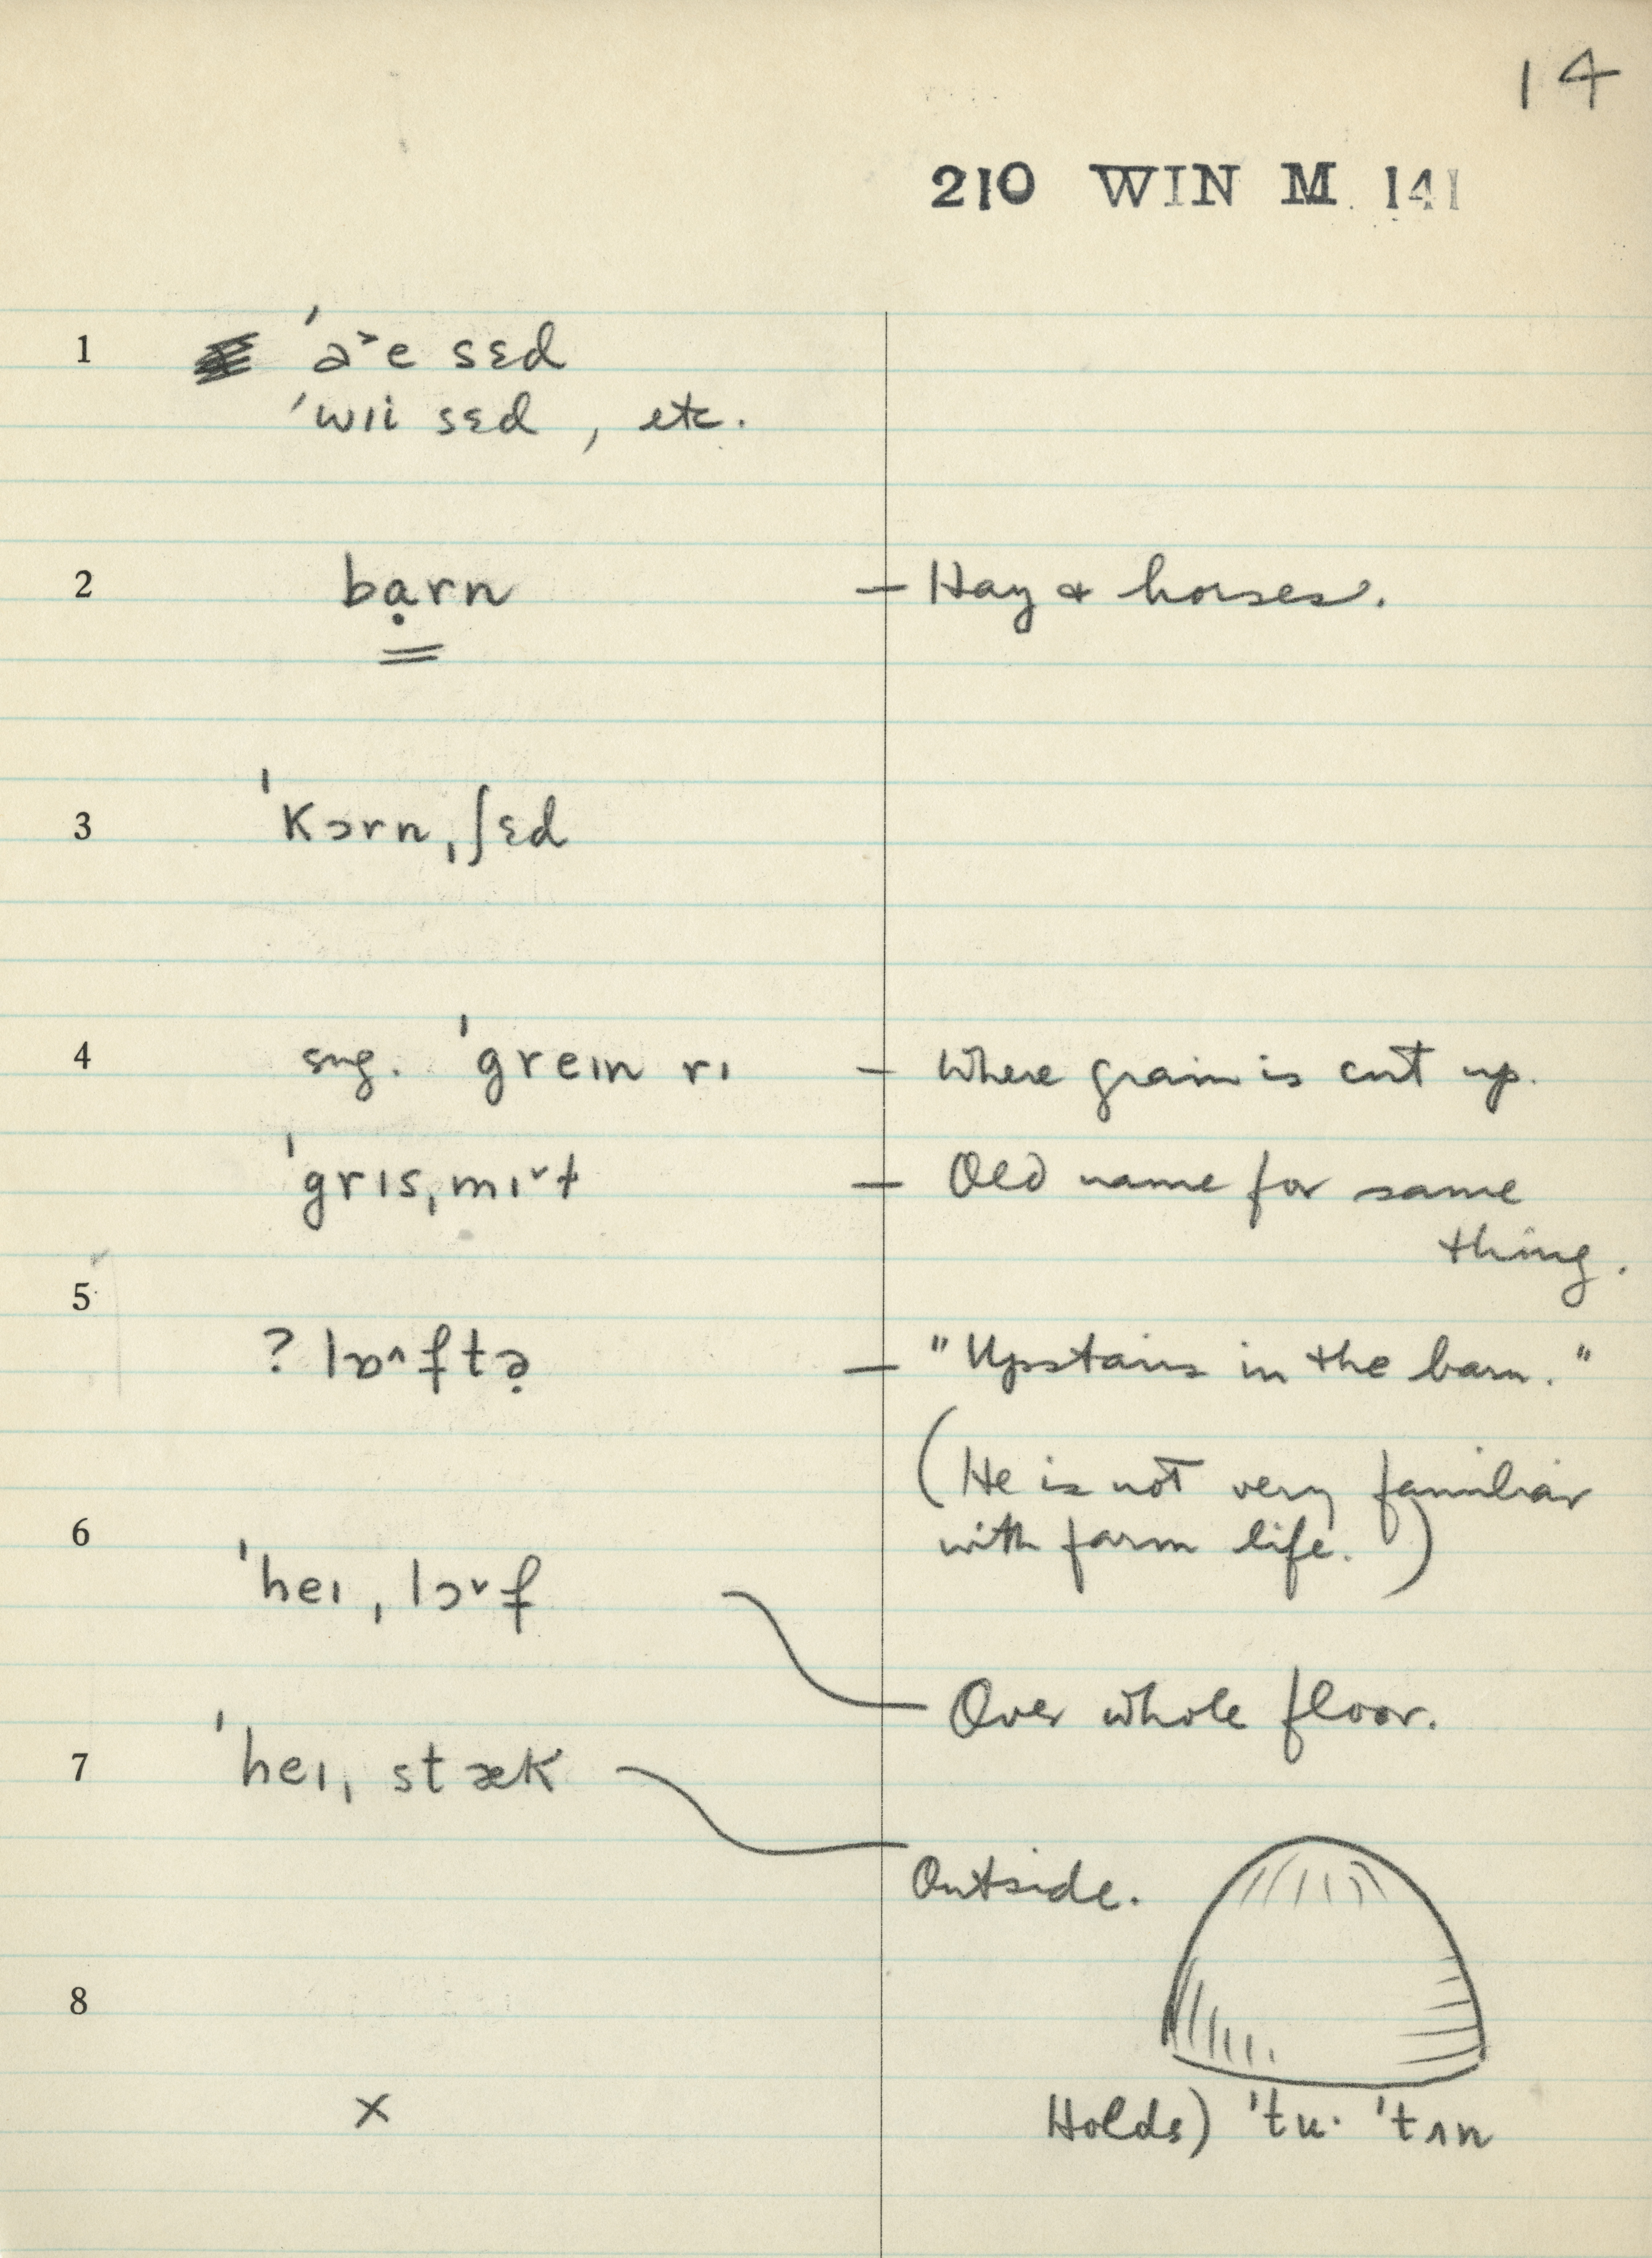 14
210 WIN M 141
1 ˈa˃e sɛd
ˈwɪi sɛd , etc.
2 bạrn — Hay & horses.
3 ˈkɔrnˌʃɛd
4 sug. ˈgreɪn rɪ — Where grain is cut up.
ˈgrɪsˌmɪ˅ɫ — Old name for same
thing.
5
? lɒ˄ftə̣ — "Upstairs in the barn."
(He is not very familiar
with farm life.)
6
ˈheɪˌlɔ˅f
Over whole floor.
7 ˈheɪˌstæk
Outside.
8
x
Holds) ˈtu· ˈtʌn